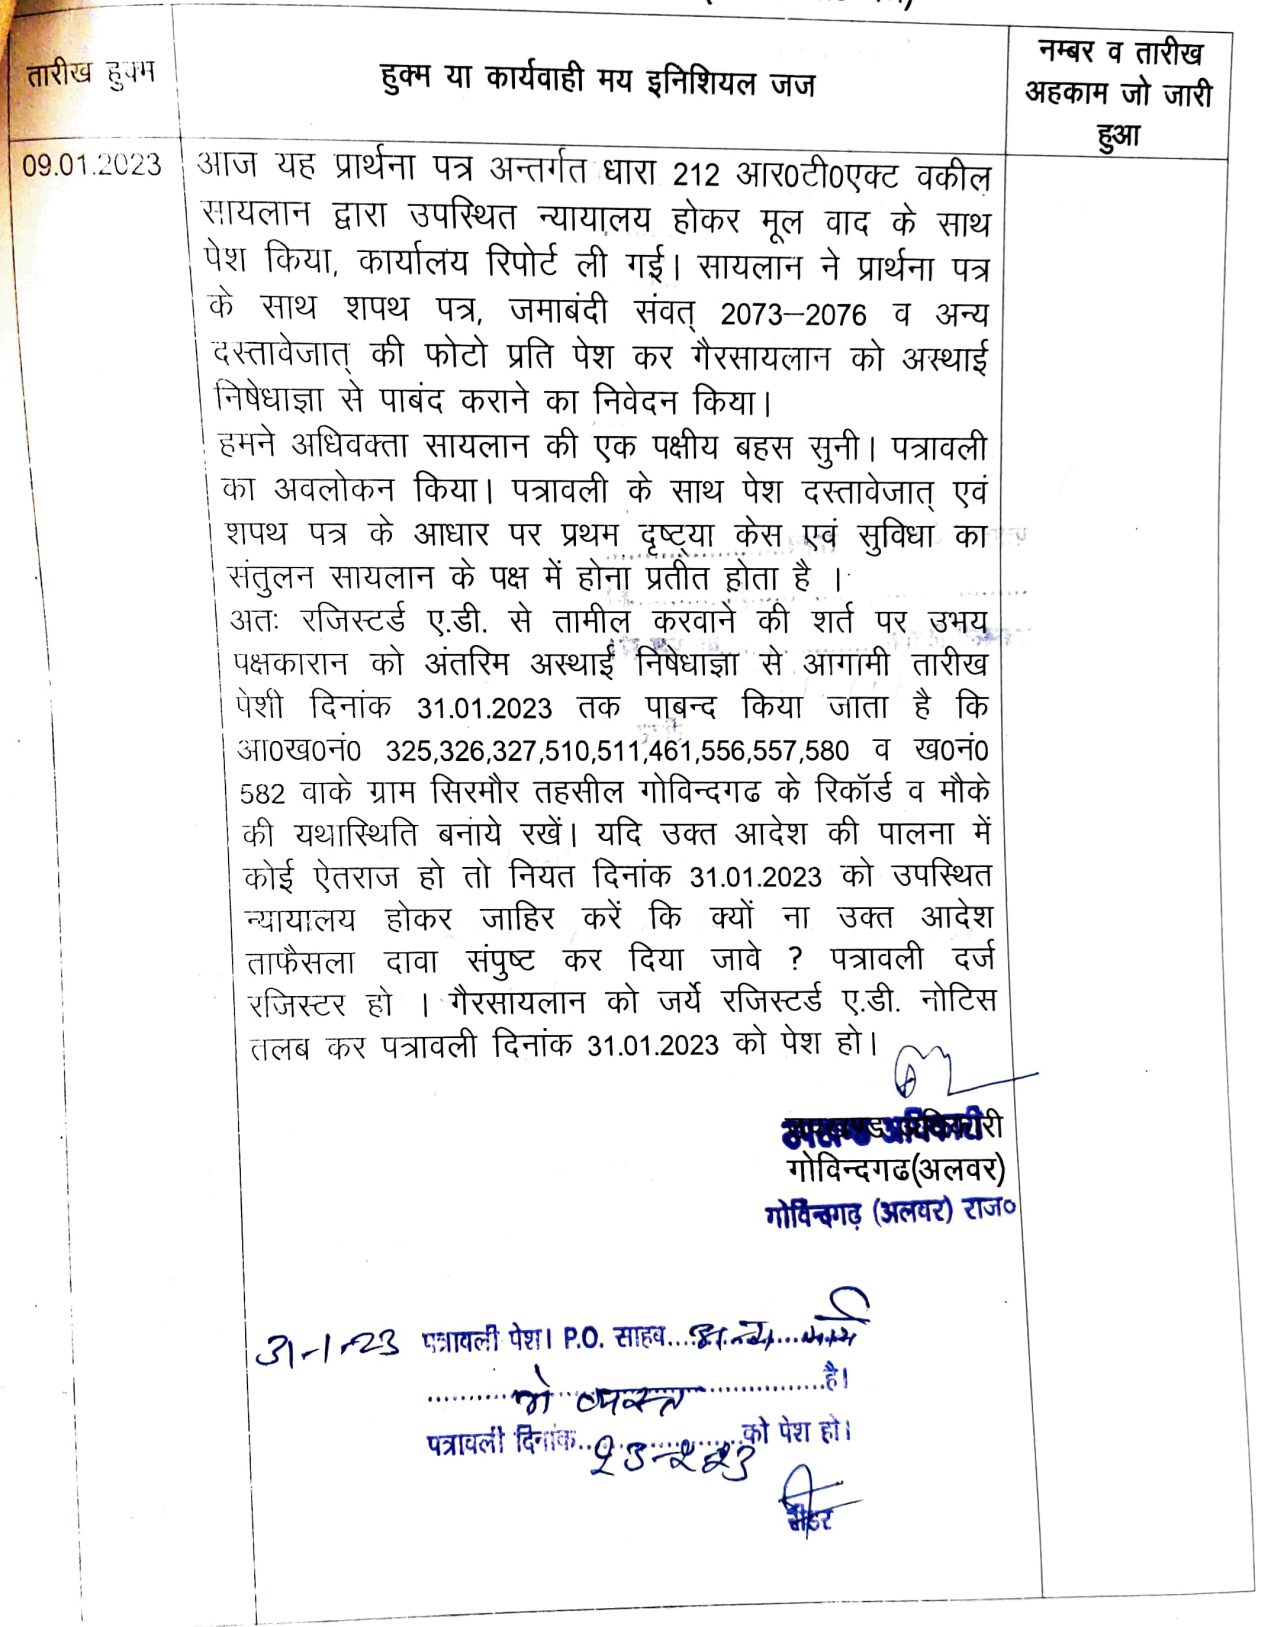 तारीख हुक्म
हुक्म या कार्यवाही मय इनिशियल जज
नम्बर व तारीख
अहकाम जो जारी
हुआ
09.01.2023
आज यह प्रार्थना पत्र अन्तर्गत धारा 212 आर0टी0एक्ट वकील
सायलान द्वारा उपस्थित न्यायालय होकर मूल वाद के साथ
पेश किया, कार्यालय रिपोर्ट ली गई। सायलान ने प्रार्थना पत्र
के साथ शपथ पत्र, जमाबंदी संवत् 2073–2076 व अन्य
दस्तावेजात् की फोटो प्रति पेश कर गैरसायलान को अस्थाई
निषेधाज्ञा से पाबंद कराने का निवेदन किया।
हमने अधिवक्ता सायलान की एक पक्षीय बहस सुनी। पत्रावली
का अवलोकन किया। पत्रावली के साथ पेश दस्तावेजात् एवं
शपथ पत्र के आधार पर प्रथम दृष्ट्या केस एवं सुविधा का
संतुलन सायलान के पक्ष में होना प्रतीत होता है ।
अतः रजिस्टर्ड ए.डी. से तामील करवाने की शर्त पर उभय
पक्षकारान को अंतरिम अस्थाई निषेधाज्ञा से आगामी तारीख
पेशी दिनांक 31.01.2023 तक पाबन्द किया जाता है कि
आ0ख0नं0 325,326,327,510,511,461,556,557,580 व ख0नं0
582 वाके ग्राम सिरमौर तहसील गोविन्दगढ के रिकॉर्ड व मौके
की यथास्थिति बनाये रखें। यदि उक्त आदेश की पालना में
कोई ऐतराज हो तो नियत दिनांक 31.01.2023 को उपस्थित
न्यायालय होकर जाहिर करें कि क्यों ना उक्त आदेश
ताफैसला दावा संपुष्ट कर दिया जावे ? पत्रावली दर्ज
रजिस्टर हो । गैरसायलान को जर्ये रजिस्टर्ड ए.डी. नोटिस
तलब कर पत्रावली दिनांक 31.01.2023 को पेश हो।
उपखण्ड अधिकारी
गोविन्दगढ(अलवर)
गोविन्दगढ़ (अलवर) राज०
31-1-23 पत्रावली पेश। P.O. साहब....अन्य....कार्य
................मे व्यस्त................है।
पत्रावली दिनांक..23-2-23..को पेश हो।
रीडर